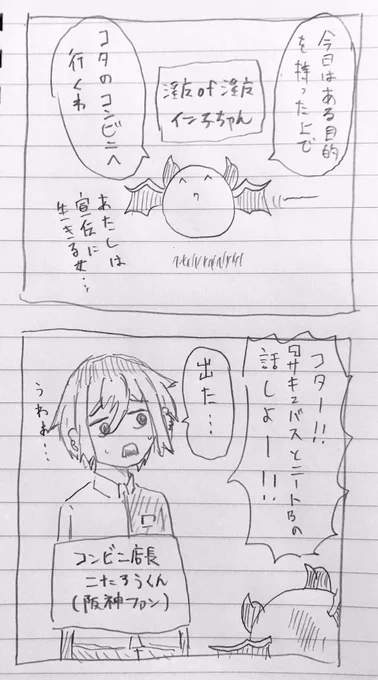 今日はある目的
を持った上で
淫友of淫友
イン子ちゃん
コタのコンビニへ
行くわ
あたしは
宣伝に
生きる女…
コター!!
サキュバスとニートBの
話しよー!!
出た…
うわぁ…
コンビニ店長
コたろうくん
(阪神ファン)